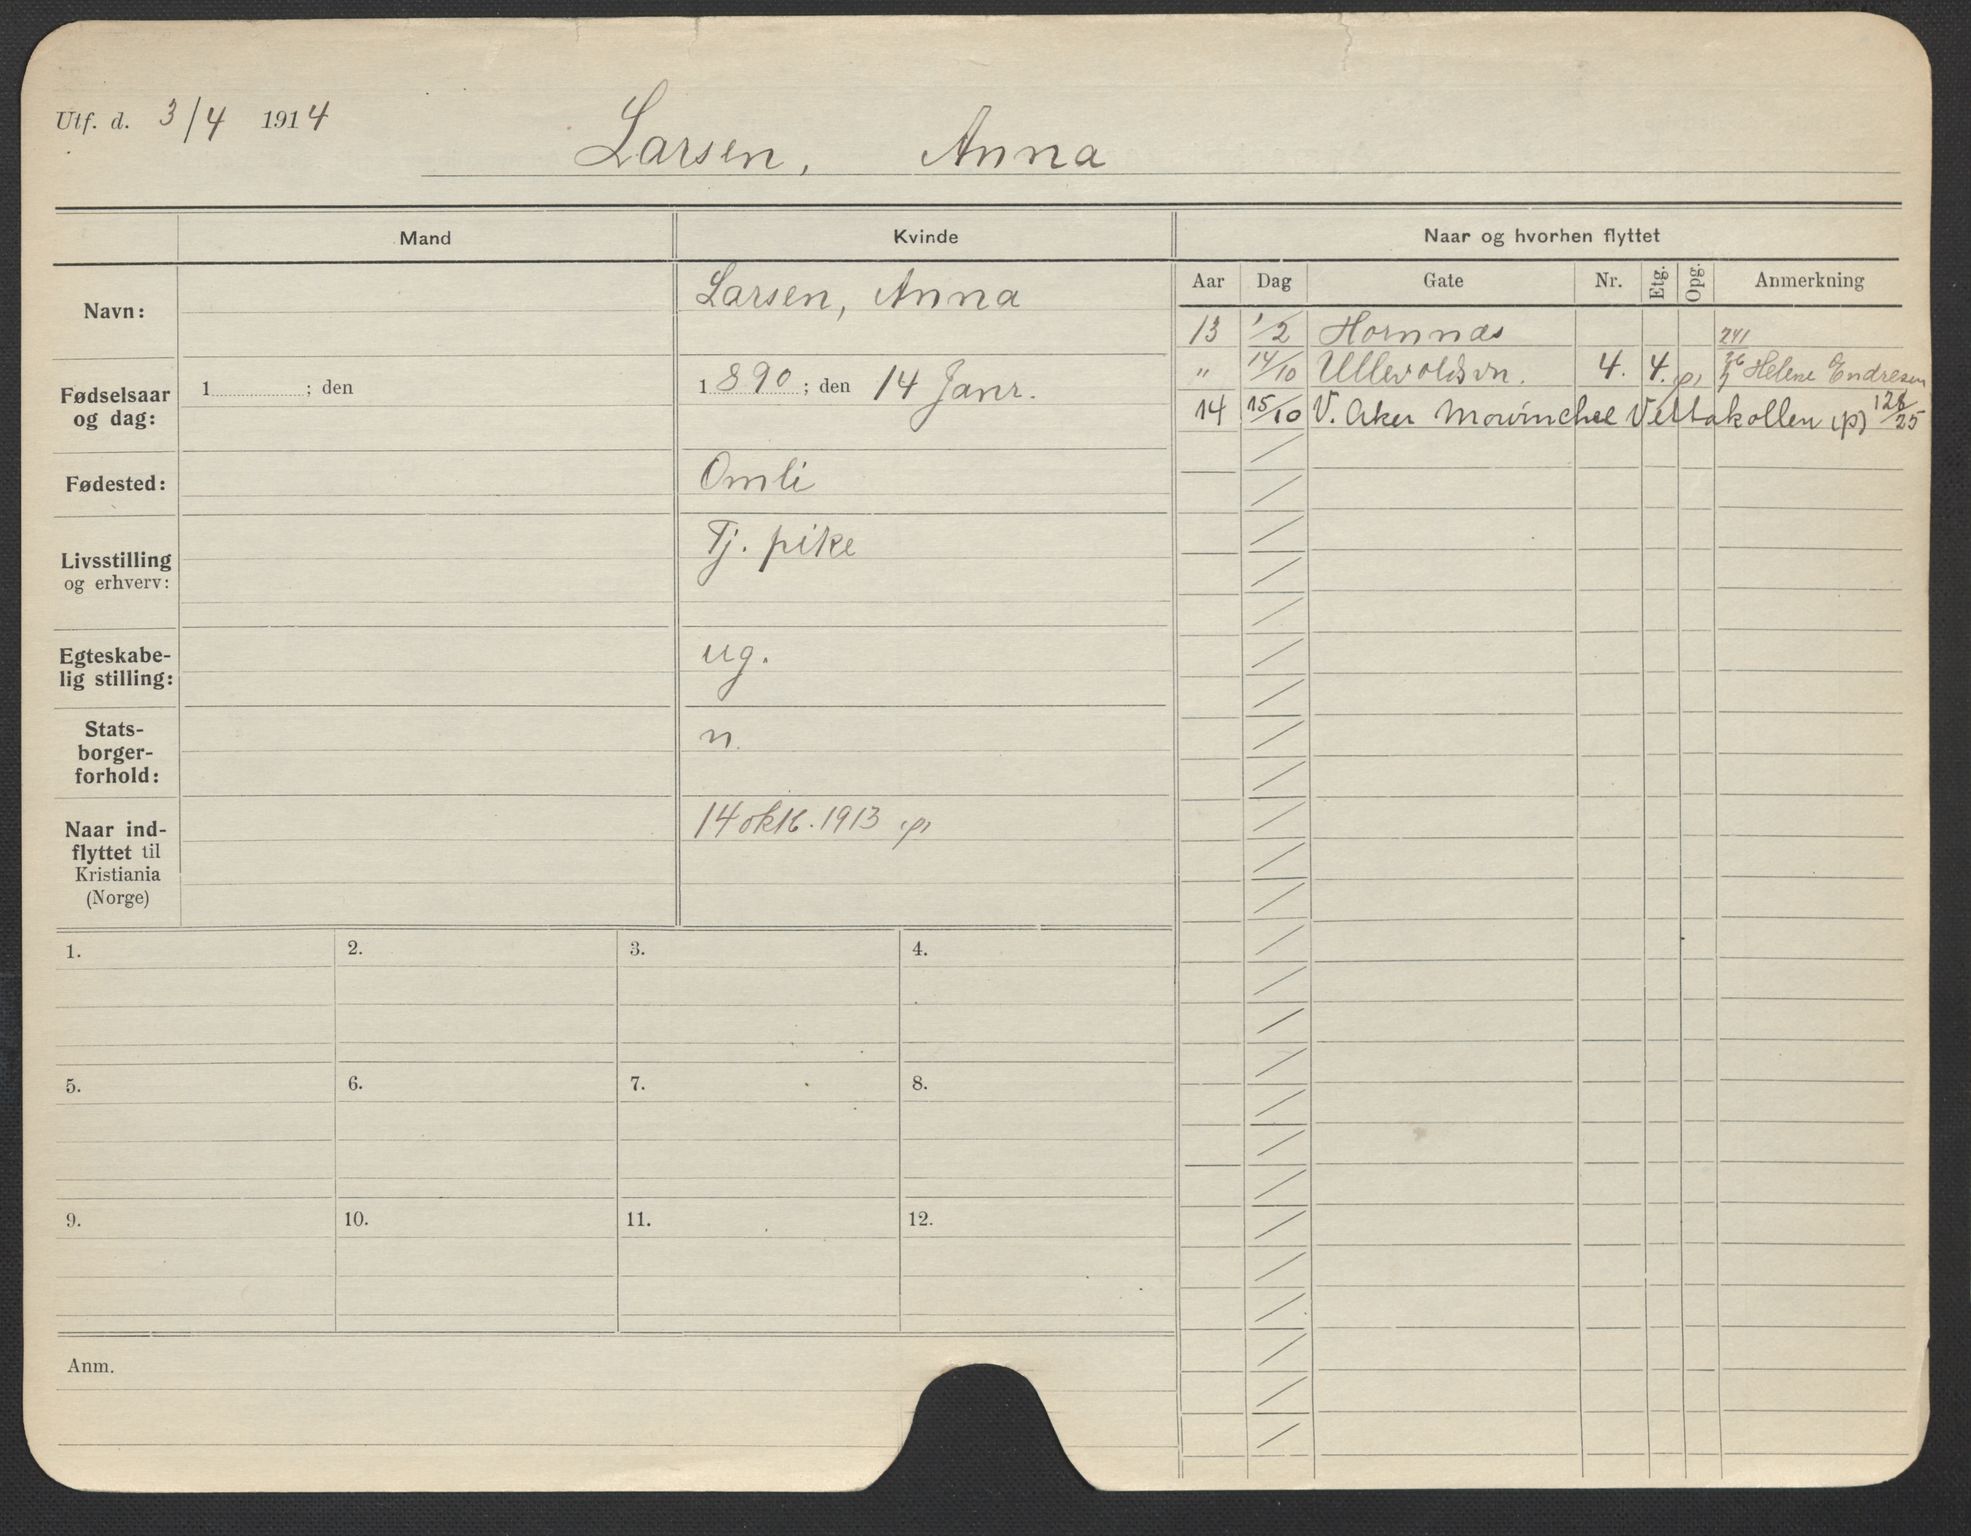 Utf. d. 3/4 1914
Larsen, Anna
Mand
Kvinde
Naar og hvorhen flyttet
Aar Dag Gate Nr. Etg. Opg. Anmerkning
Navn:
Larsen, Anna
Fødselsaar og dag:
1 ; den
1890; den 14 Janr.
Fødested:
Omli
Livsstilling
og erhverv:
Tj. pike
Egteskabe-
lig stilling:
ug.
Stats-
borger-
forhold:
n.
Naar ind-
flyttet til
Kristiania
(Norge)
14 okt. 1913 (p)
13 1/2 Hornnæs 241
" 14/10 Ullevoldsvn. 4. 4. (p) Helene Endresen
14 15/10 V. Aker Mowinchel Vettakollen (p) 128/25
1. 2. 3. 4.
5. 6. 7. 8.
9. 10. 11. 12.
Anm.